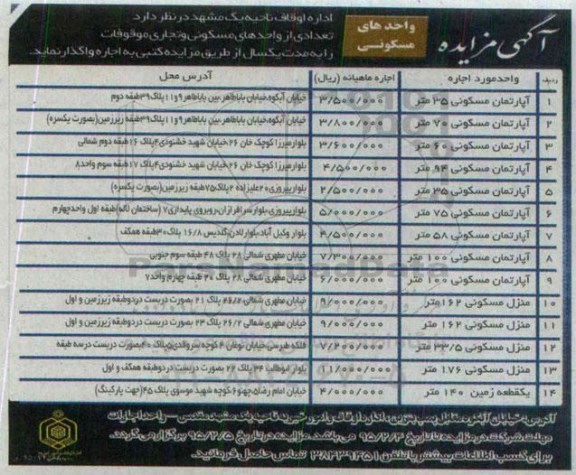 آگهی مزایده
واحدهای مسکونی
اداره اوقاف ناحیه یک مشهد در نظر دارد
تعدادی از واحدهای مسکونی و تجاری موقوفات
را به مدت یکسال از طریق مزایده کتبی به اجاره واگذار نماید.
ردیف واحد مورد اجاره اجاره ماهیانه (ریال) آدرس محل
۱ آپارتمان مسکونی ۳۵ متر ۳/۵۰۰/۰۰۰ خیابان آبکوه خیابان باباطاهر بین باباطاهر ۹ و ۱۱ پلاک ۳۹ طبقه دوم
۲ آپارتمان مسکونی ۷۰ متر ۳/۸۰۰/۰۰۰ خیابان آبکوه خیابان باباطاهر بین باباطاهر ۹ و ۱۱ پلاک ۳۹ طبقه زیرزمین (بصورت یکسره)
۳ آپارتمان مسکونی ۶۰ متر ۳/۶۰۰/۰۰۰ بلوار میرزا کوچک خان ۲۶ خیابان شهید خشنودی ۴ پلاک ۱۶ طبقه دوم شمالی
۴ آپارتمان مسکونی ۹۴ متر ۴/۵۰۰/۰۰۰ بلوار میرزا کوچک خان ۲۶ خیابان شهید خشنودی ۴ پلاک ۱۷ طبقه سوم واحد ۸
۵ آپارتمان مسکونی ۳۵ متر ۲/۵۰۰/۰۰۰ بلوار پیروزی ۲۰ علیزاده ۲ پلاک ۷۵ طبقه زیرزمین (بصورت یکسره)
۶ آپارتمان مسکونی ۷۵ متر ۵/۰۰۰/۰۰۰ بلوار پیروزی بلوار سرافرازان روبروی پایداری ۷ (ساختمان لاله) طبقه اول واحد چهارم
۷ آپارتمان مسکونی ۵۸ متر ۴/۵۰۰/۰۰۰ بلوار وکیل آباد بلوار لادن گلدیس ۱۶/۸ پلاک ۳۰ طبقه همکف
۸ آپارتمان مسکونی ۱۰۰ متر ۷/۳۰۰/۰۰۰ خیابان مطهری شمالی ۲۸ پلاک ۴۸ طبقه سوم جنوبی
۹ آپارتمان مسکونی ۱۰۰ متر ۶/۰۰۰/۰۰۰ خیابان مطهری شمالی ۲۸ پلاک ۲۰ طبقه چهارم واحد ۷
۱۰ منزل مسکونی ۱۶۲ متر ۹/۰۰۰/۰۰۰ خیابان مطهری شمالی ۲۶/۲ پلاک ۲۱ بصورت دربست در دو طبقه زیرزمین و اول
۱۱ منزل مسکونی ۱۶۲ متر ۹/۰۰۰/۰۰۰ خیابان مطهری شمالی ۲۶/۲ پلاک ۲۳ بصورت دربست در دو طبقه زیرزمین و اول
۱۲ منزل مسکونی ۳۳/۵ متر فلکه طبرسی خیابان نوغان ۴ کوچه سروقدی ۵ پلاک ۴۰ بصورت دربست در سه طبقه
۱۳ منزل مسکونی ۱۷۶ متر ۱۱/۰۰۰/۰۰۰ بلوار ابوطالب ۳۴ پلاک ۲۲ بصورت دربست در دو طبقه همکف و اول
۱۴ یکقطعه زمین ۱۴۰ متر ۴/۰۰۰/۰۰۰ خیابان امام رضا ۵ چهنو ۶ کوچه شهید موسوی پلاک ۴۵ (جهت پارکینگ)
آدرس: خیابان آبکوه، مقابل پمپ بنزین، اداره اوقاف و امور خیریه ناحیه یک مشهد مقدس - واحد اجارات
مهلت شرکت در مزایده تا تاریخ ۹۵/۲/۴ می باشد. مزایده در تاریخ ۹۵/۲/۵ برگزار می گردد.
برای کسب اطلاعات بیشتر با تلفن ۳۸۴۳۹۴۵۱ تماس حاصل فرمائید.